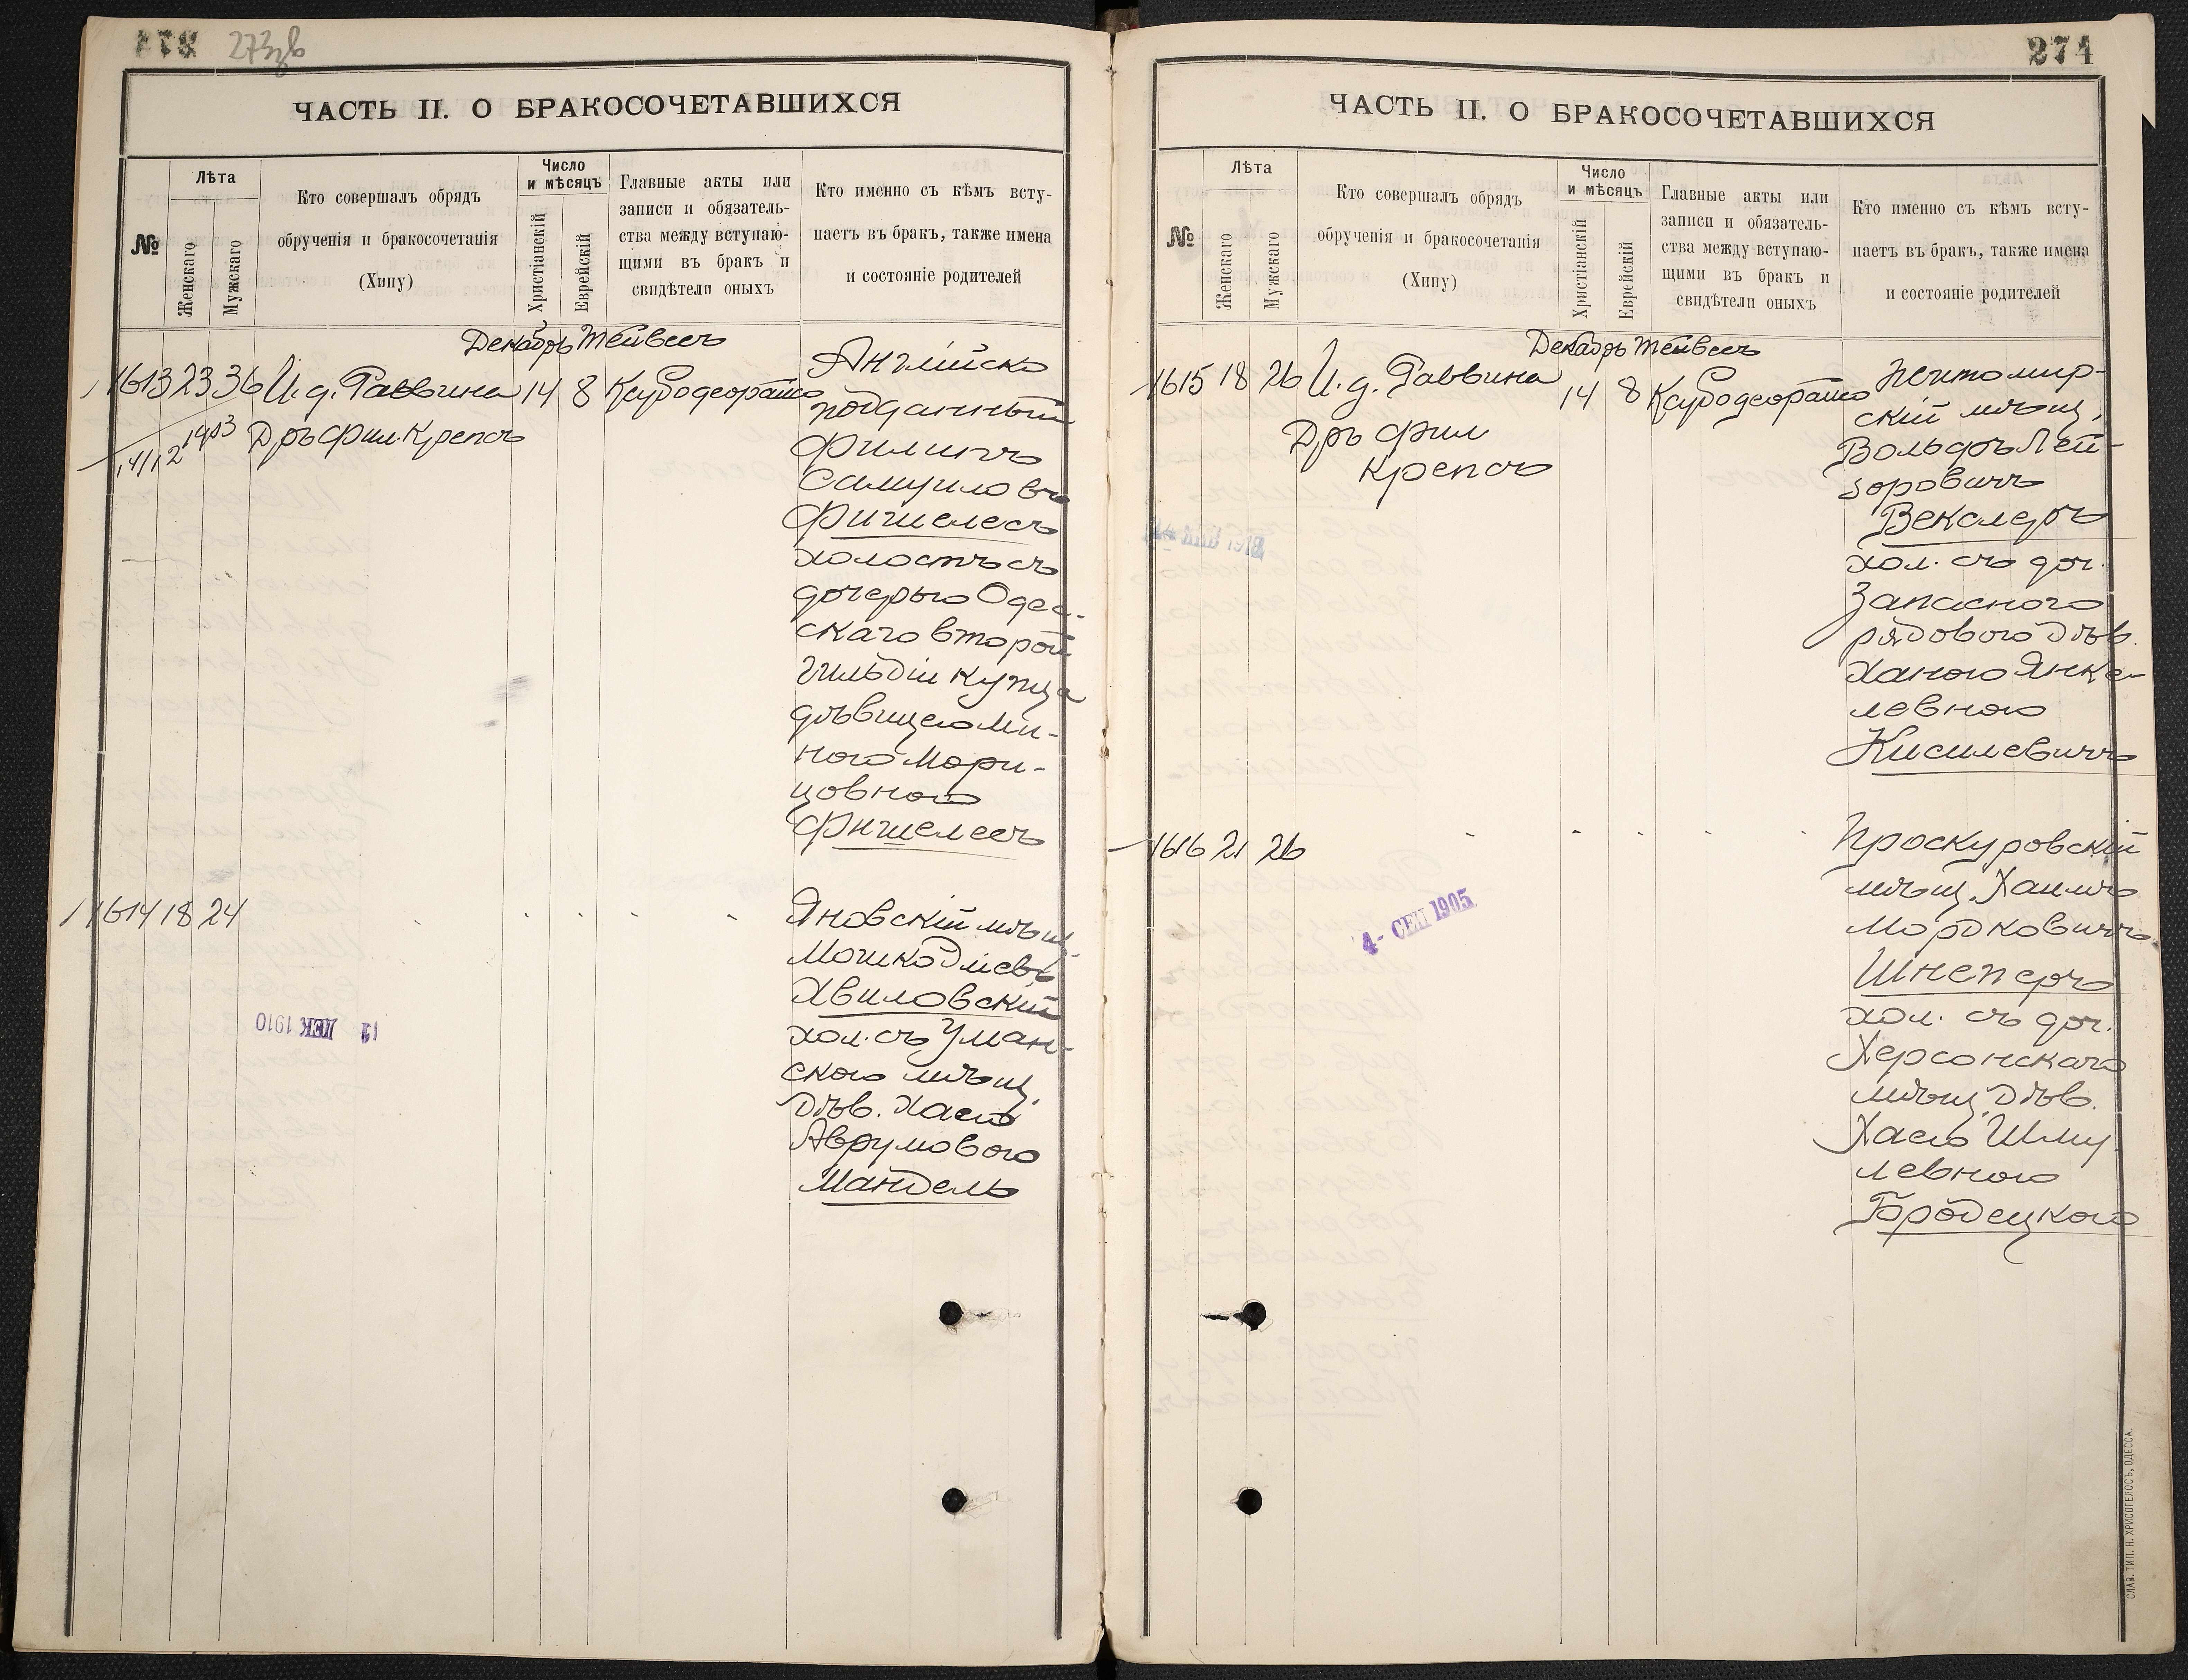 273 об
ЧАСТЬ II. О БРАКОСОЧЕТАВШИХСЯ
№
Лѣта
Женскаго
Мужскаго
Кто совершалъ обрядъ
обрученія и бракосочетанія
(Хипу)
Число
и мѣсяцъ
Христіанскій
Еврейскій
Главные акты или
записи и обязатель-
ства между вступаю-
щими въ бракъ и
свидѣтели оныхъ
Кто именно съ кѣмъ всту-
паетъ въ бракъ, также имена
и состояніе родителей
Декабрь Тейвесъ
1613 23 36 И. д. Раввина 14 8
Дръ Фил. Крепсъ
14/12 1903
Англійско
подданный
Филиппъ
Самуиловъ
Фишелесъ
холостъ съ
дочерью Одес-
скаго второй
гильдіи купца
дѣвицею Ми-
ною Мори-
цовною
Фишелесъ
1614 18 24
Яновскій мѣщ.
Мошко Діевъ
Хвиловскій
хол. съ Уман-
скою мѣщ.
дѣв. Хаею
Аврумовою
Мандель
12 ДЕК 1910
274
ЧАСТЬ II. О БРАКОСОЧЕТАВШИХСЯ
№
Лѣта
Женскаго
Мужскаго
Кто совершалъ обрядъ
обрученія и бракосочетанія
(Хипу)
Число
и мѣсяцъ
Христіанскій
Еврейскій
Главные акты или
записи и обязатель-
ства между вступаю-
щими въ бракъ и
свидѣтели оныхъ
Кто именно съ кѣмъ всту-
паетъ въ бракъ, также имена
и состояніе родителей
Декабрь Тейвесъ
1615 18 26 И. д. Раввина 14 8
Дръ Фил
Крепсъ
Житомир-
скій мѣщ.
Вольфъ Лей-
зоровичъ
Векслеръ
хол. съ доч.
Запасного
рядового дѣв.
Ханою Янке-
левною
Кисилевичъ
1616 21 26
Проскуровскій
мѣщ. Хаимъ
Мордковичъ
Шнеперъ
хол. съ доч.
Херсонскаго
мѣщ. дѣв.
Хаею Шму
левною
Бродецкою
4- СЕН 1905
СЛАВ. ТИП. Н. ХРИСОГЕЛОСЪ, ОДЕССА.